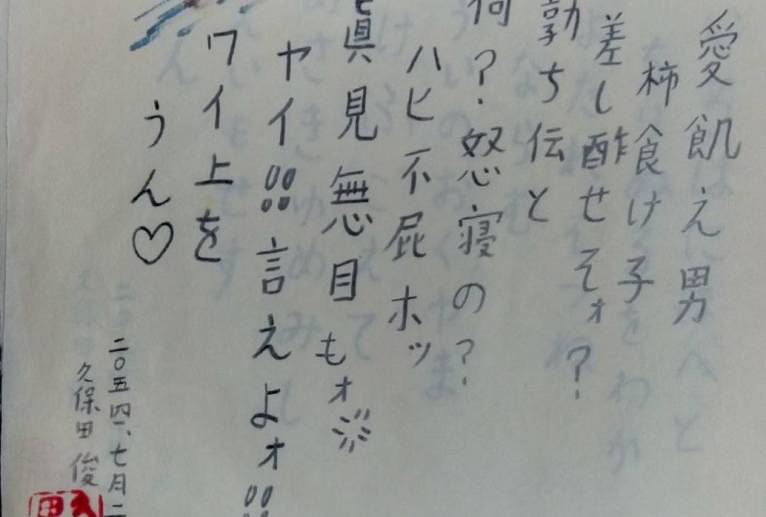 愛飢え男
柿食け子
差し酢せそォ？
勃ち伝と
何？怒寝の？
ハヒ不屁ホッ
眞見無目もォ
ヤイ!!言えよォ!!
ワイ上を
うん♡
七月二
久保田 俊